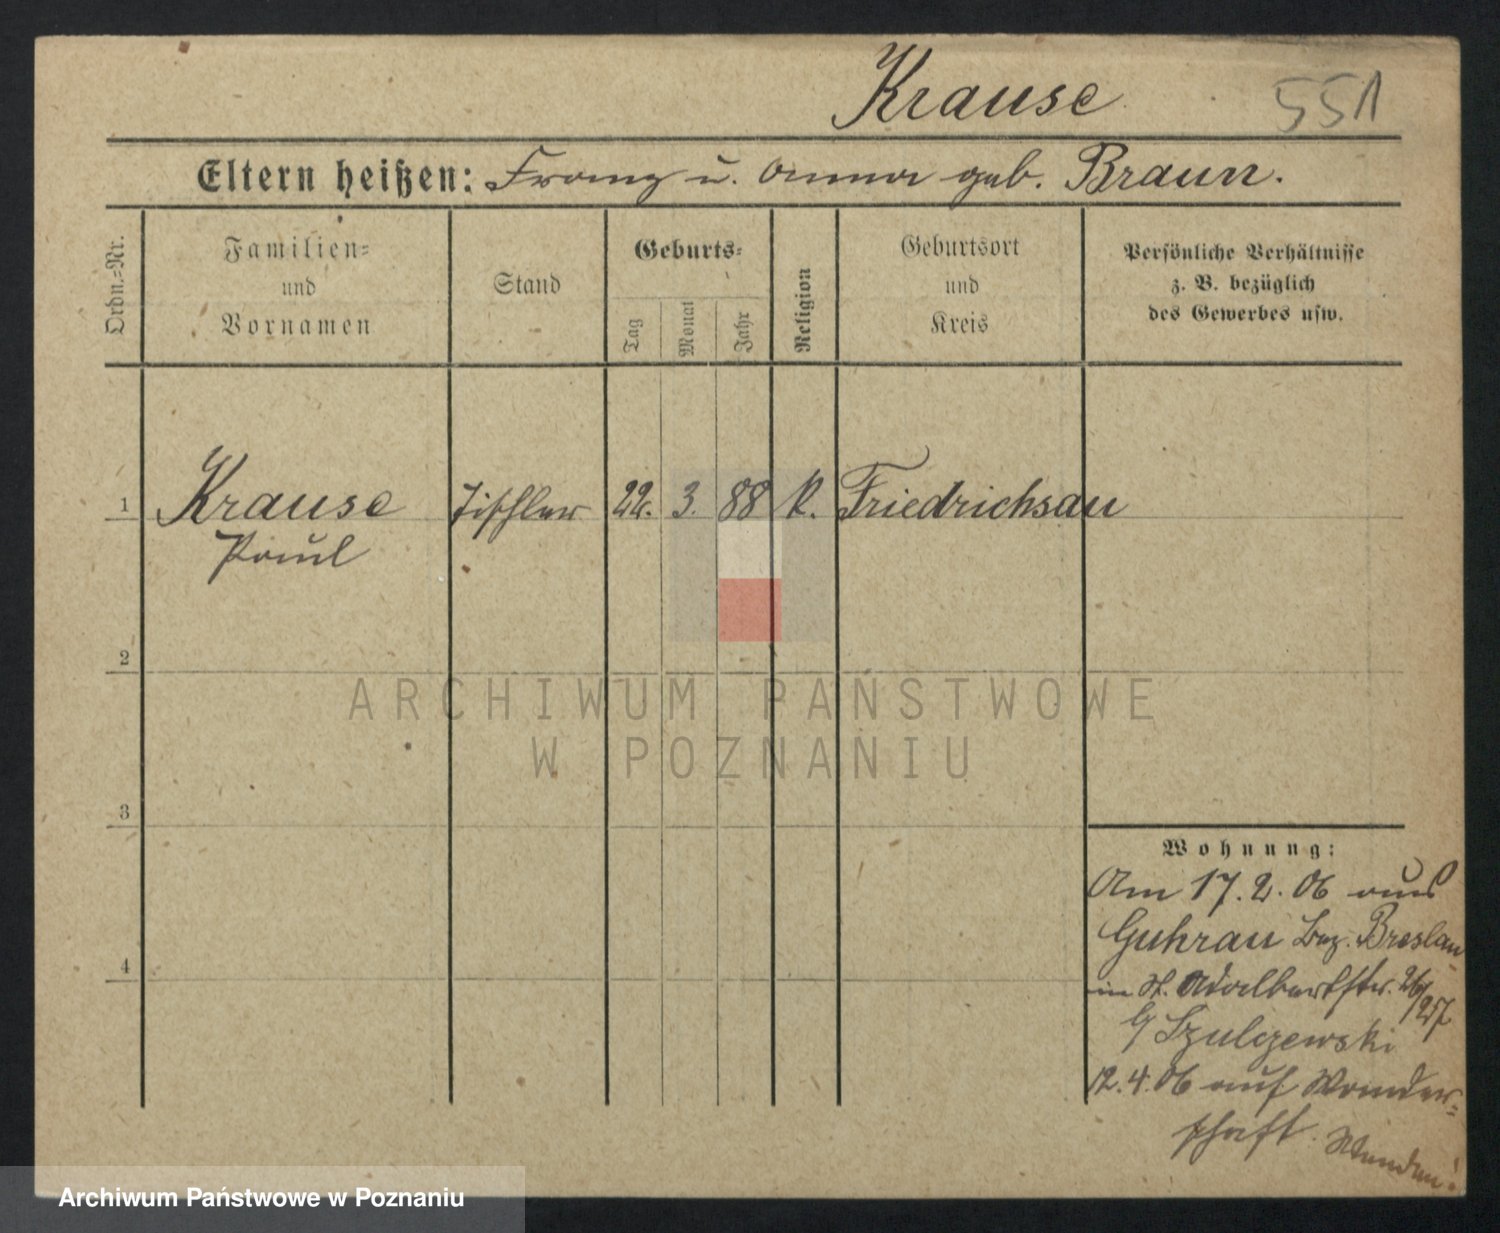 Krause 551
Eltern heißen: Franz u. Anna geb. Braun.
Ordn.-Nr.
Familien-
und
Vornamen
Stand
Geburts-
Tag
Monat
Jahr
Religion
Geburtsort
und
Kreis
Persönliche Verhältnisse
z. B. bezüglich
des Gewerbes usw.
1 Krause Tischler 22. 3. 88 k. Friedrichsau
Paul
2
ARCHIWUM PAŃSTWOWE
W POZNANIU
3
Wohnung:
Am 17.2.06 aus
Guhrau Bez. Breslau
in St. Adalbertstr. 26/27
b/ Szulczewski
12.4.06 auf Wander-
schaft. Wenden!
4
Archiwum Państwowe w Poznaniu